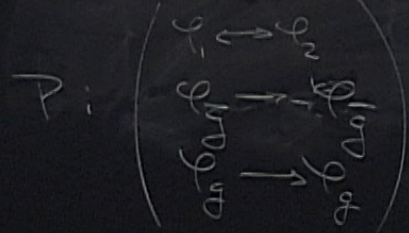 φ₁ ↔ φ₂
P: φ_g̅ → -φ_g̅
φ_g → φ_g